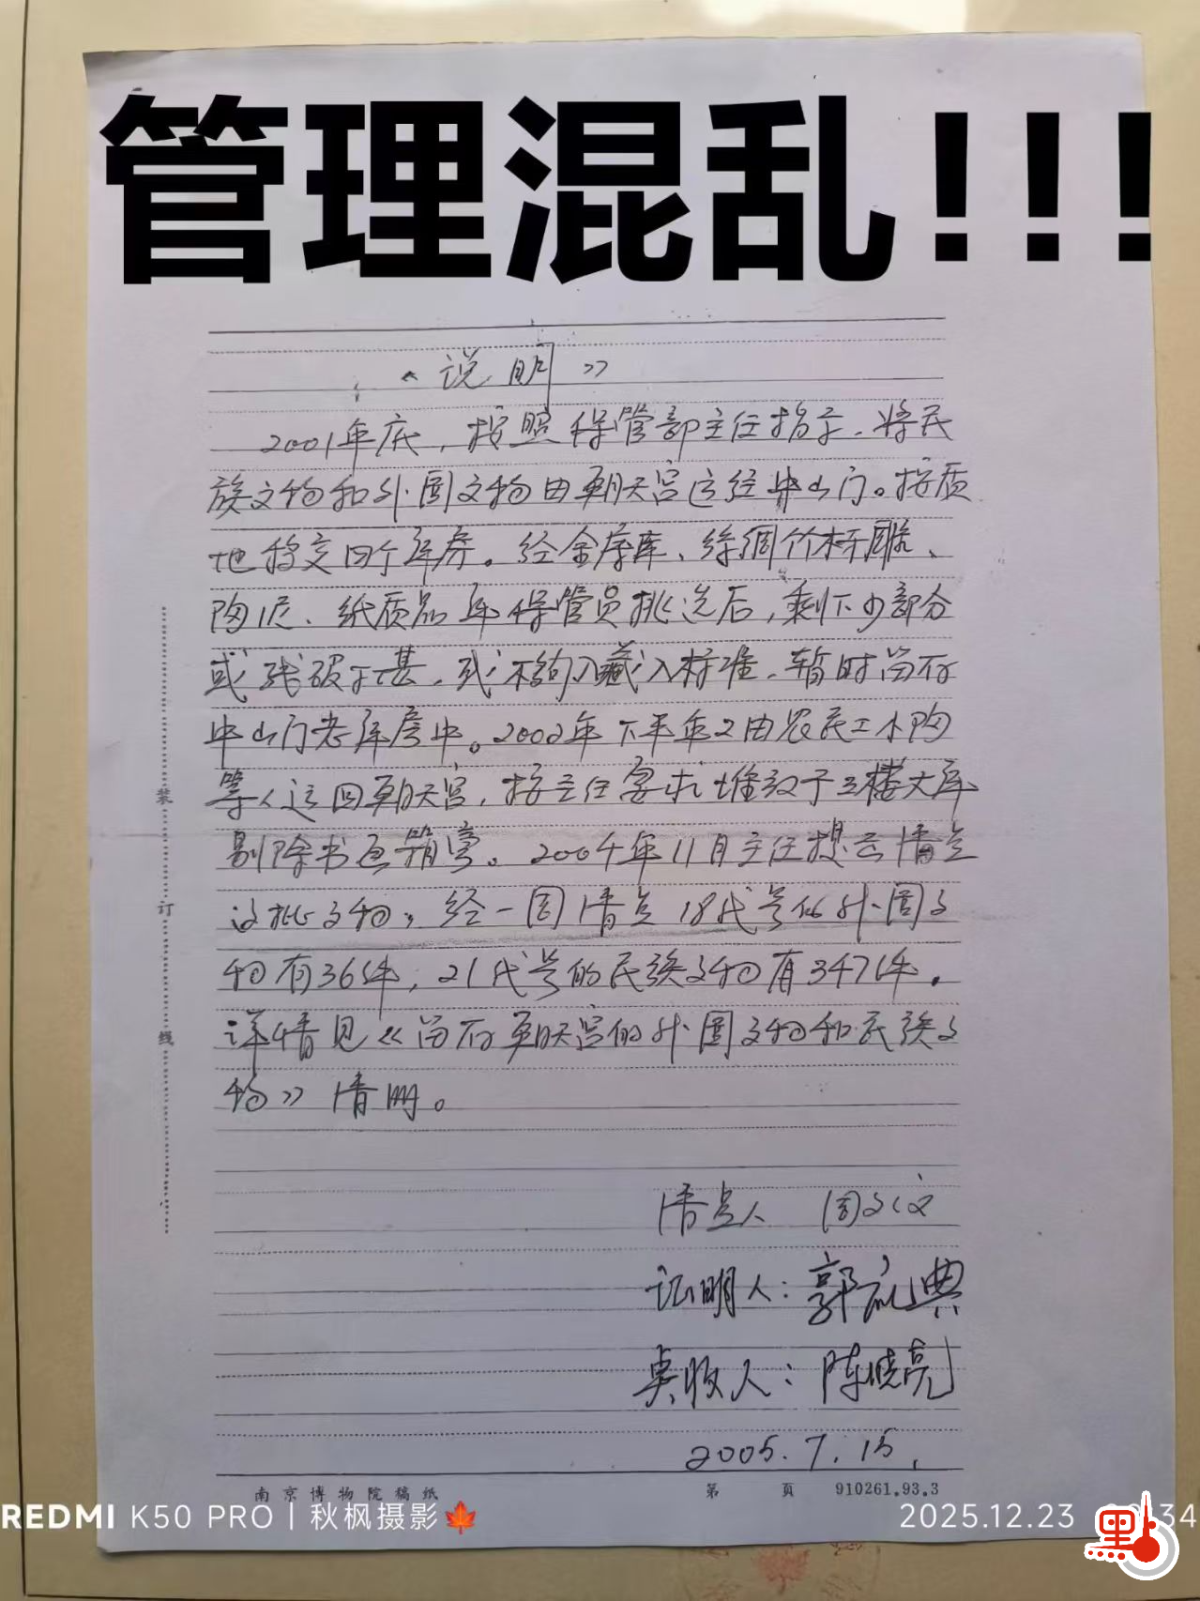 管理混乱!!!
《说明》
2001年底，按照保管部主任指示，将民
族文物和外国文物由朝天宫运经中山门。按质
地移交四个库房。经金库、丝绸竹木牙雕、
陶瓷、纸质品库保管员挑选后，剩下少部分
或残破不甚，或不够入藏入标准，暂时留存
中山门老库房中。2002年下半年又由农民工小陶
等人运回朝天宫，按主任要求堆放于三楼大库
剔除书画箱旁。2004年11月主任提示清点
这批文物，经一周清点18代号的外国文
物有36件，21代号的民族文物有347件。
详情见《留存朝天宫的外国文物和民族文
物》清册。
清点人 周
证明人：郭礼典
点收人：陈晓亮
2005.7.15.
装
订
线
南京博物院稿纸 第 页 910261.93.3
REDMI K50 PRO | 秋枫摄影 2025.12.23
里